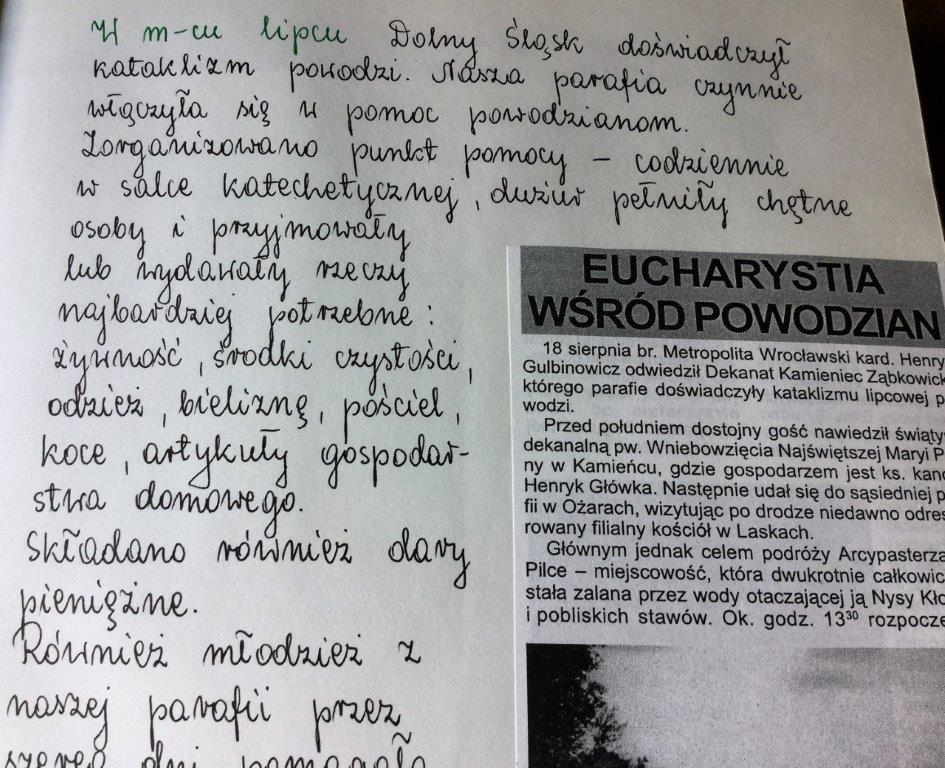 W m-cu lipcu Dolny Śląsk doświadczył
kataklizm powodzi. Nasza parafia czynnie
włączyła się w pomoc powodzianom.
Zorganizowano punkt pomocy – codziennie
w salce katechetycznej, dużur pełniły chętne
osoby i przyjmowały
lub wydawały rzeczy
najbardziej potrzebne:
żywność, środki czystości,
odzież, bieliznę, pościel,
koce, artykuły gospodar-
stwa domowego.
Składano również dary
pieniężne.
Również młodzież z
naszej parafii przez
szereg dni pomagała
EUCHARYSTIA
WŚRÓD POWODZIAN
18 sierpnia br. Metropolita Wrocławski kard. Henry
Gulbinowicz odwiedził Dekanat Kamieniec Ząbkowick
którego parafie doświadczyły kataklizmu lipcowej p
wodzi.
Przed południem dostojny gość nawiedził święty
dekanalną pw. Wniebowzięcia Najświętszej Maryi P
ny w Kamieńcu, gdzie gospodarzem jest ks. kano
Henryk Główka. Następnie udał się do sąsiedniej p
fii w Ożarach, wizytując po drodze niedawno odres
rowany filialny kościół w Laskach.
Głównym jednak celem podróży Arcypasterza
Pilce – miejscowość, która dwukrotnie całkowic
stała zalana przez wody otaczającej ją Nysy Kło
i pobliskich stawów. Ok. godz. 13³⁰ rozpocze